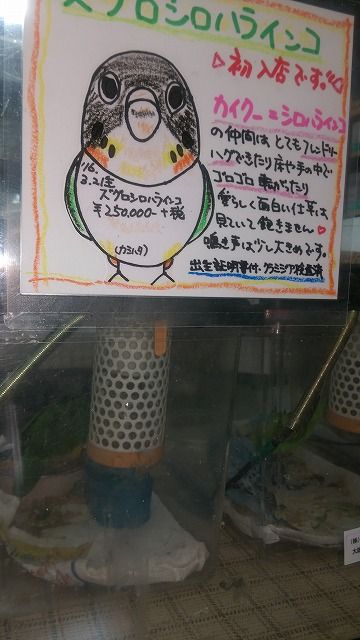 ズグロシロハラインコ
▷初入店です。
カイクー=シロハラインコ
の仲間は、とてもフレンドリー
ハグできたり床や手の中で
ゴロゴロ転がったり
愛らしく面白い仕草は
見ていて飽きません♡
鳴き声は少し大きめです。
出生証明書付・クラミジア検査済
'16.
3.21生
ズグロシロハラインコ
¥250,000-+税
(カミハタ)